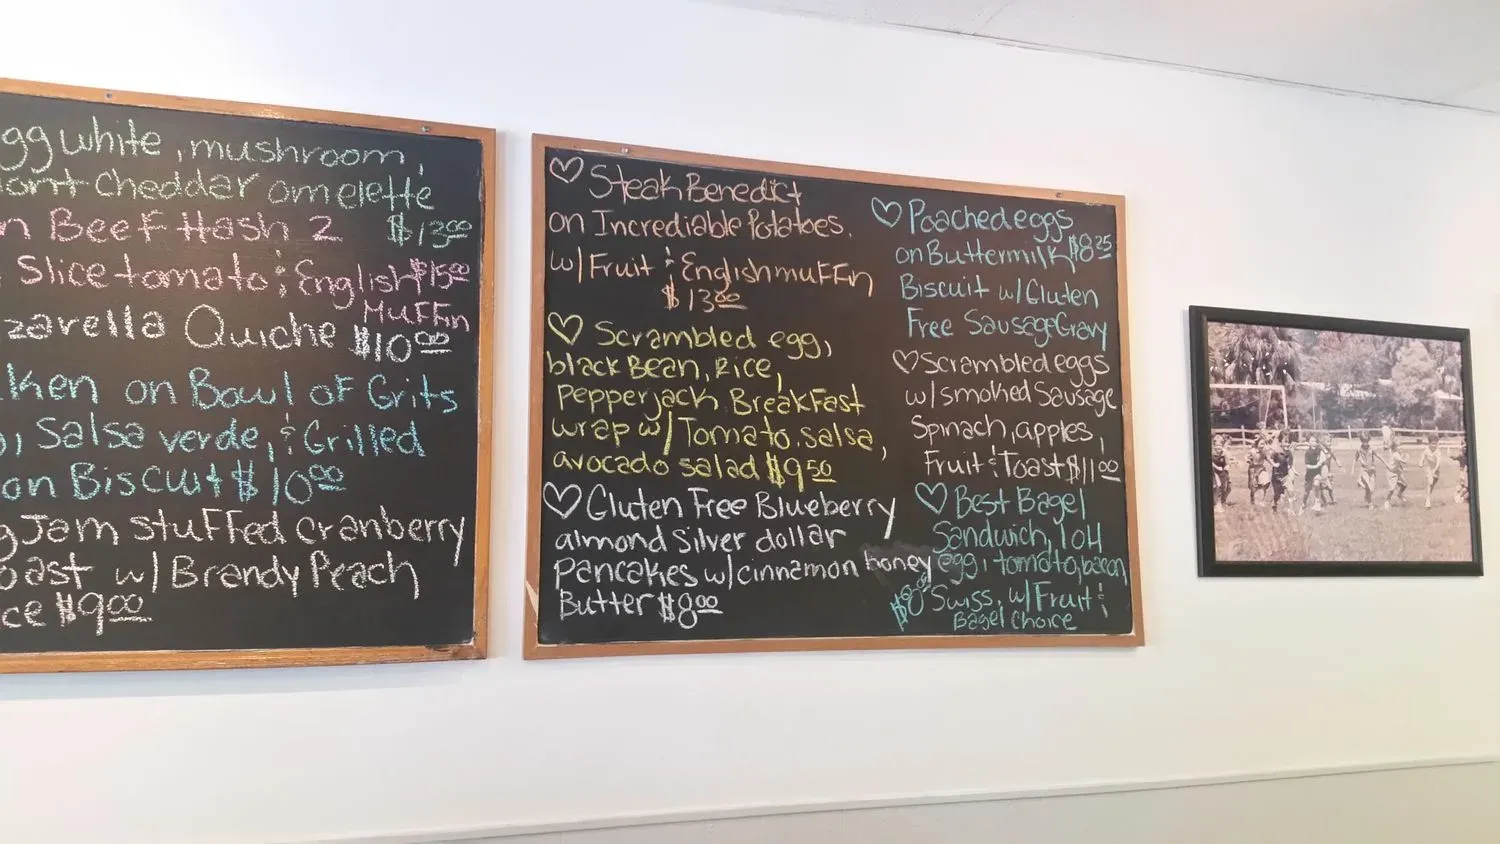 gg white, mushroom,
mont cheddar omelette
n Beef Hash 2 $13.00
Slice tomato & English $15.00
Muffin
zzarella Quiche $10.00
ken on Bowl of Grits
, Salsa verde, & Grilled
on Biscuit $10.00
g Jam stuffed cranberry
oast w/ Brandy Peach
ce $9.00
♡ Steak Benedict
on Incrediable Potatoes.
w/ Fruit & English muffin
$13.00
♡ Scrambled egg,
black Bean, Rice,
Pepperjack Breakfast
wrap w/ Tomato, salsa,
avocado salad $9.50
♡ Gluten Free Blueberry
almond Silver dollar
pancakes w/ cinnamon honey
Butter $8.00
♡ Poached eggs
on Buttermilk $8.25
Biscuit w/ Gluten
Free Sausage Gravy
♡ Scrambled eggs
w/ smoked Sausage
Spinach, apples,
Fruit & Toast $11.00
♡ Best Bagel
Sandwich, 1 OH
egg, tomato, bacon,
Swiss, w/ Fruit &
Bagel Choice